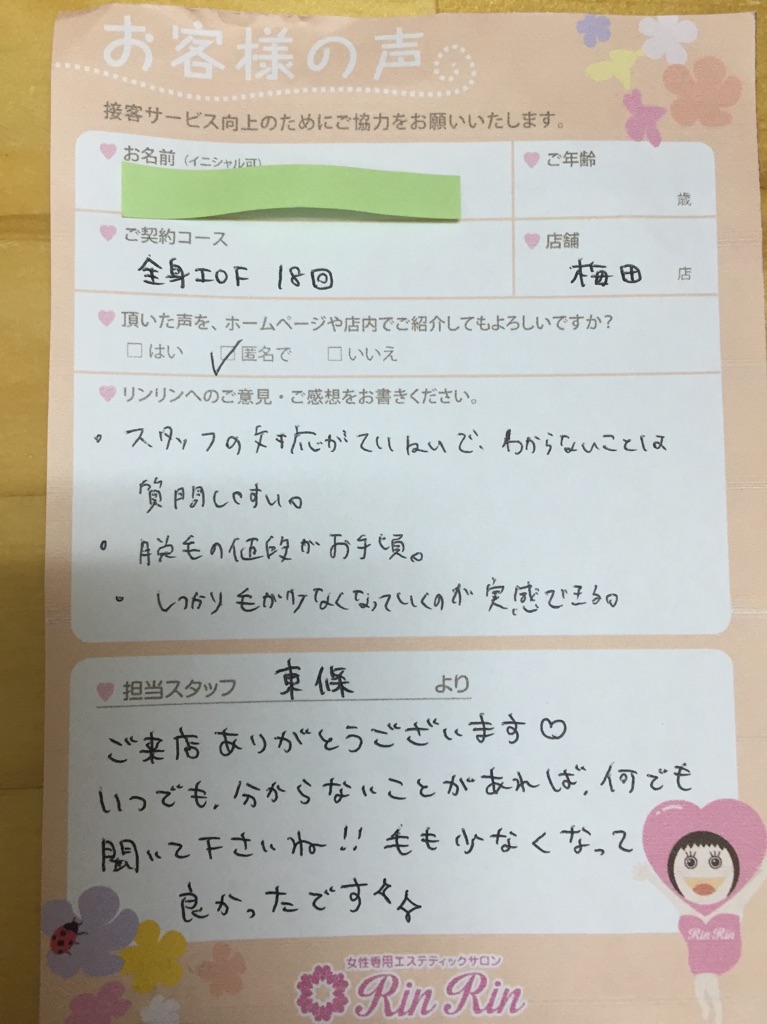 お客様の声
接客サービス向上のためにご協力をお願いいたします。
お名前（イニシャル可）
ご年齢
歳
ご契約コース
全身IOF 18回
店舗
梅田 店
頂いた声を、ホームページや店内でご紹介してもよろしいですか？
はい 匿名で いいえ
リンリンへのご意見・ご感想をお書きください。
・スタッフの対応がていねいで、わからないことは
質問しやすい。
・脱毛の値段がお手頃。
・しっかり毛が少なくなっていくのが実感できる。
担当スタッフ 東條 より
ご来店ありがとうございます♡
いつでも、分からないことがあれば、何でも
聞いて下さいね!! 毛も少なくなって
良かったです
Rin Rin
女性専用エステティックサロン
Rin Rin